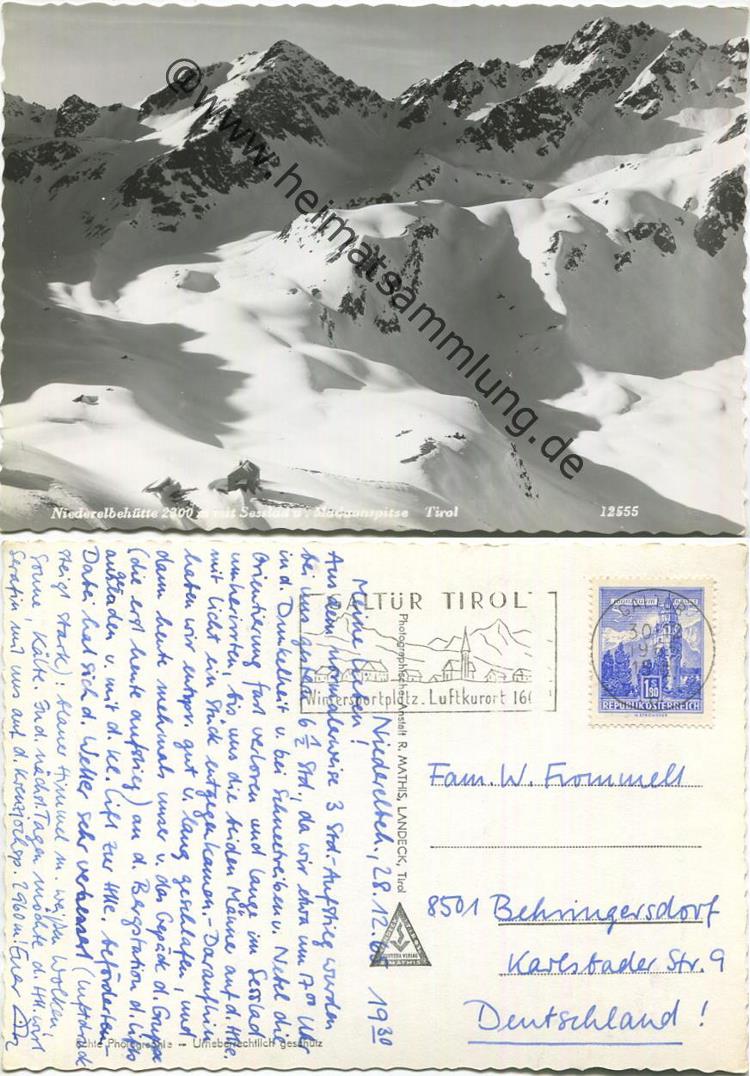 © www.heimatsammlung.de
Niederelbehütte 2300 m mit Sesslad u. Madaunspitze Tirol 12555
GALTÜR TIROL
Wintersportplatz. Luftkurort 16
30.12
REPUBLIK ÖSTERREICH
1.90
Photographische Anstalt R. MATHIS, LANDECK, Tirol
MATHIS
Fam. W. Frommelt
8501 Behringersdorf
Karlsbader Str. 9
Deutschland!
Niederelbeh., 28.12. 19 30
Meine Lieben!
Aus dem normalerweise 3 Std-Aufstieg wurden
bei uns 6 1/2 Std., da wir etwa um 17 00 Uhr
in d. Dunkelheit u. bei Schneetreiben u. Nebel die
Orientierung fast verloren und lange im Sesslad
umherirrten, bis uns die beiden Männer auf d. Hütte
mit Licht ein Stück entgegenkamen. - Daraufhin
haben wir entspr. gut u. lang geschlafen, und
dann heute nochmals unser u. das Gepäck d. Gruppe
(die erst heute aufstieg) an d. Bergstation d. Lifts
aufladen u. mit d. kl. Lift zur Hütte befördert. -
Dabei hat sich d. Wetter sehr verbessert (Luftdruck
steigt stark): blauer Himmel m. weißen Wolken,
Sonne, Kälte. Ind. nächst. Tagen möchte d.
Serafin mit uns auf d. Kreuzjochsp. 2960 m! Euer
echte Photographie — Urheberrechtlich geschützt